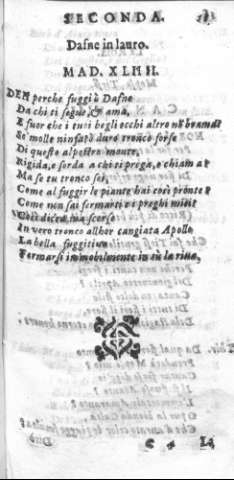 SECONDA.
Dafne in lauro.
MAD. XLIII.
DEH perche fuggi ò Dafne
Da chi ti segue, & ama,
E fuor che i tuoi begli occhi altro nõ brama?
Se molle ninfa tò duro tronco forse
Di questo alpestre monte,
Rigida, e sorda a chi ti prega, e chiama?
Ma se tu tronco sei,
Come al fuggir le piante hai così pronte?
Come non sai fermarti a i preghi miei?
Così dicea ma scorse
In vero tronco allhor cangiata Apollo
La bella fuggitiva
Fermarsi immobilmente in sù la riva,
C 4 La